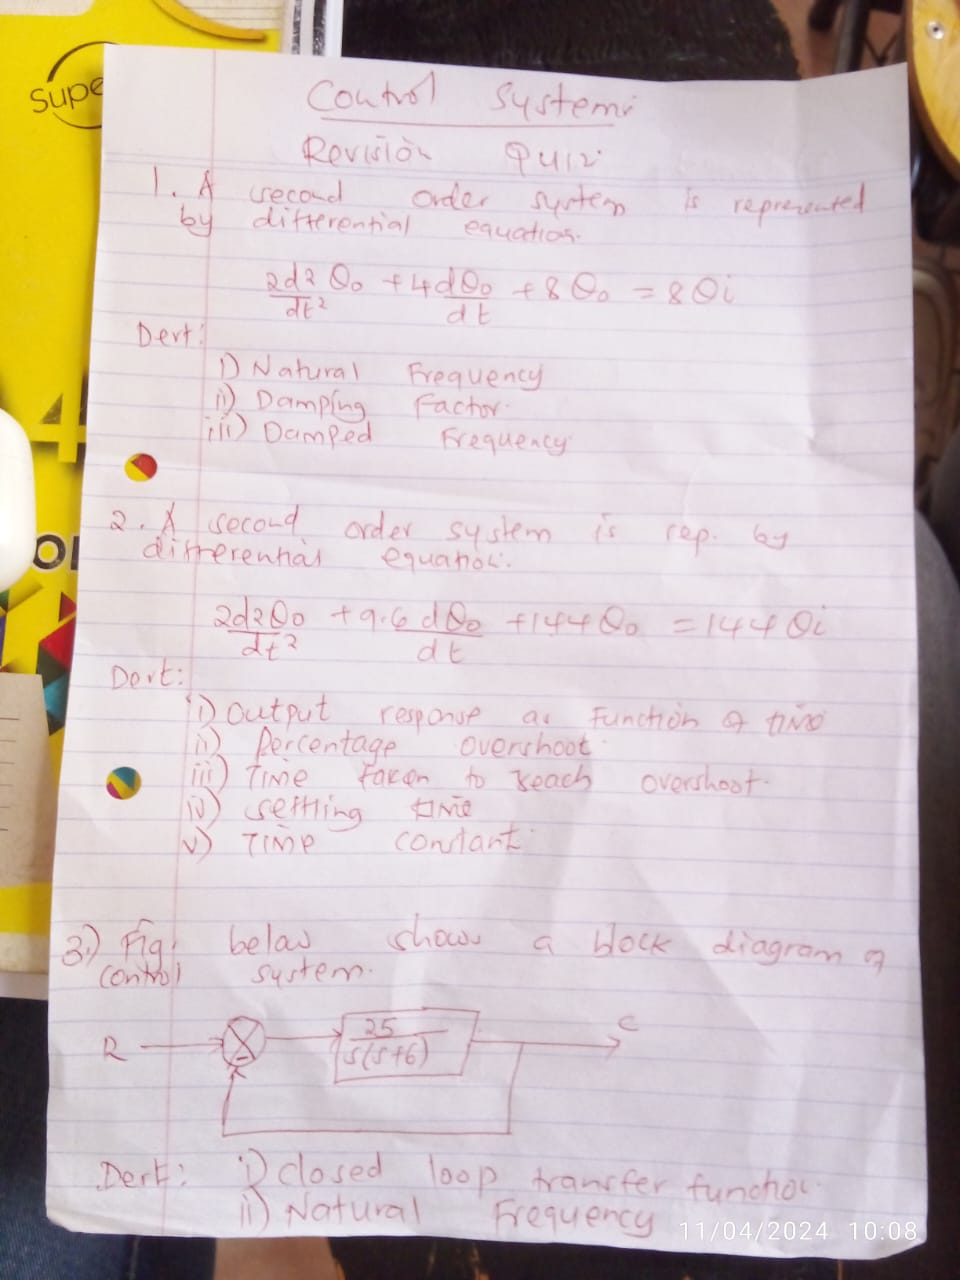 Supe
Control Systems
Revision Quiz
1. A second order system is represented
by differential equation.
2d2θo/dt² + 4dθo/dt + 8θo = 8θi
Dert:
i) Natural Frequency
ii) Damping Factor.
iii) Damped Frequency
2. A second order system is rep. by
differential equation.
2d2θo/dt² + 9.6dθo/dt + 144θo = 144θi
Dert:
i) Output response as function of time
ii) Percentage overshoot.
iii) Time taken to reach overshoot.
iv) settling time
v) Time constant.
3.) Fig. below shows a block diagram of
control system.
R 25/s(s+6) C
Dert: i) closed loop transfer function.
ii) Natural Frequency
11/04/2024 10:08